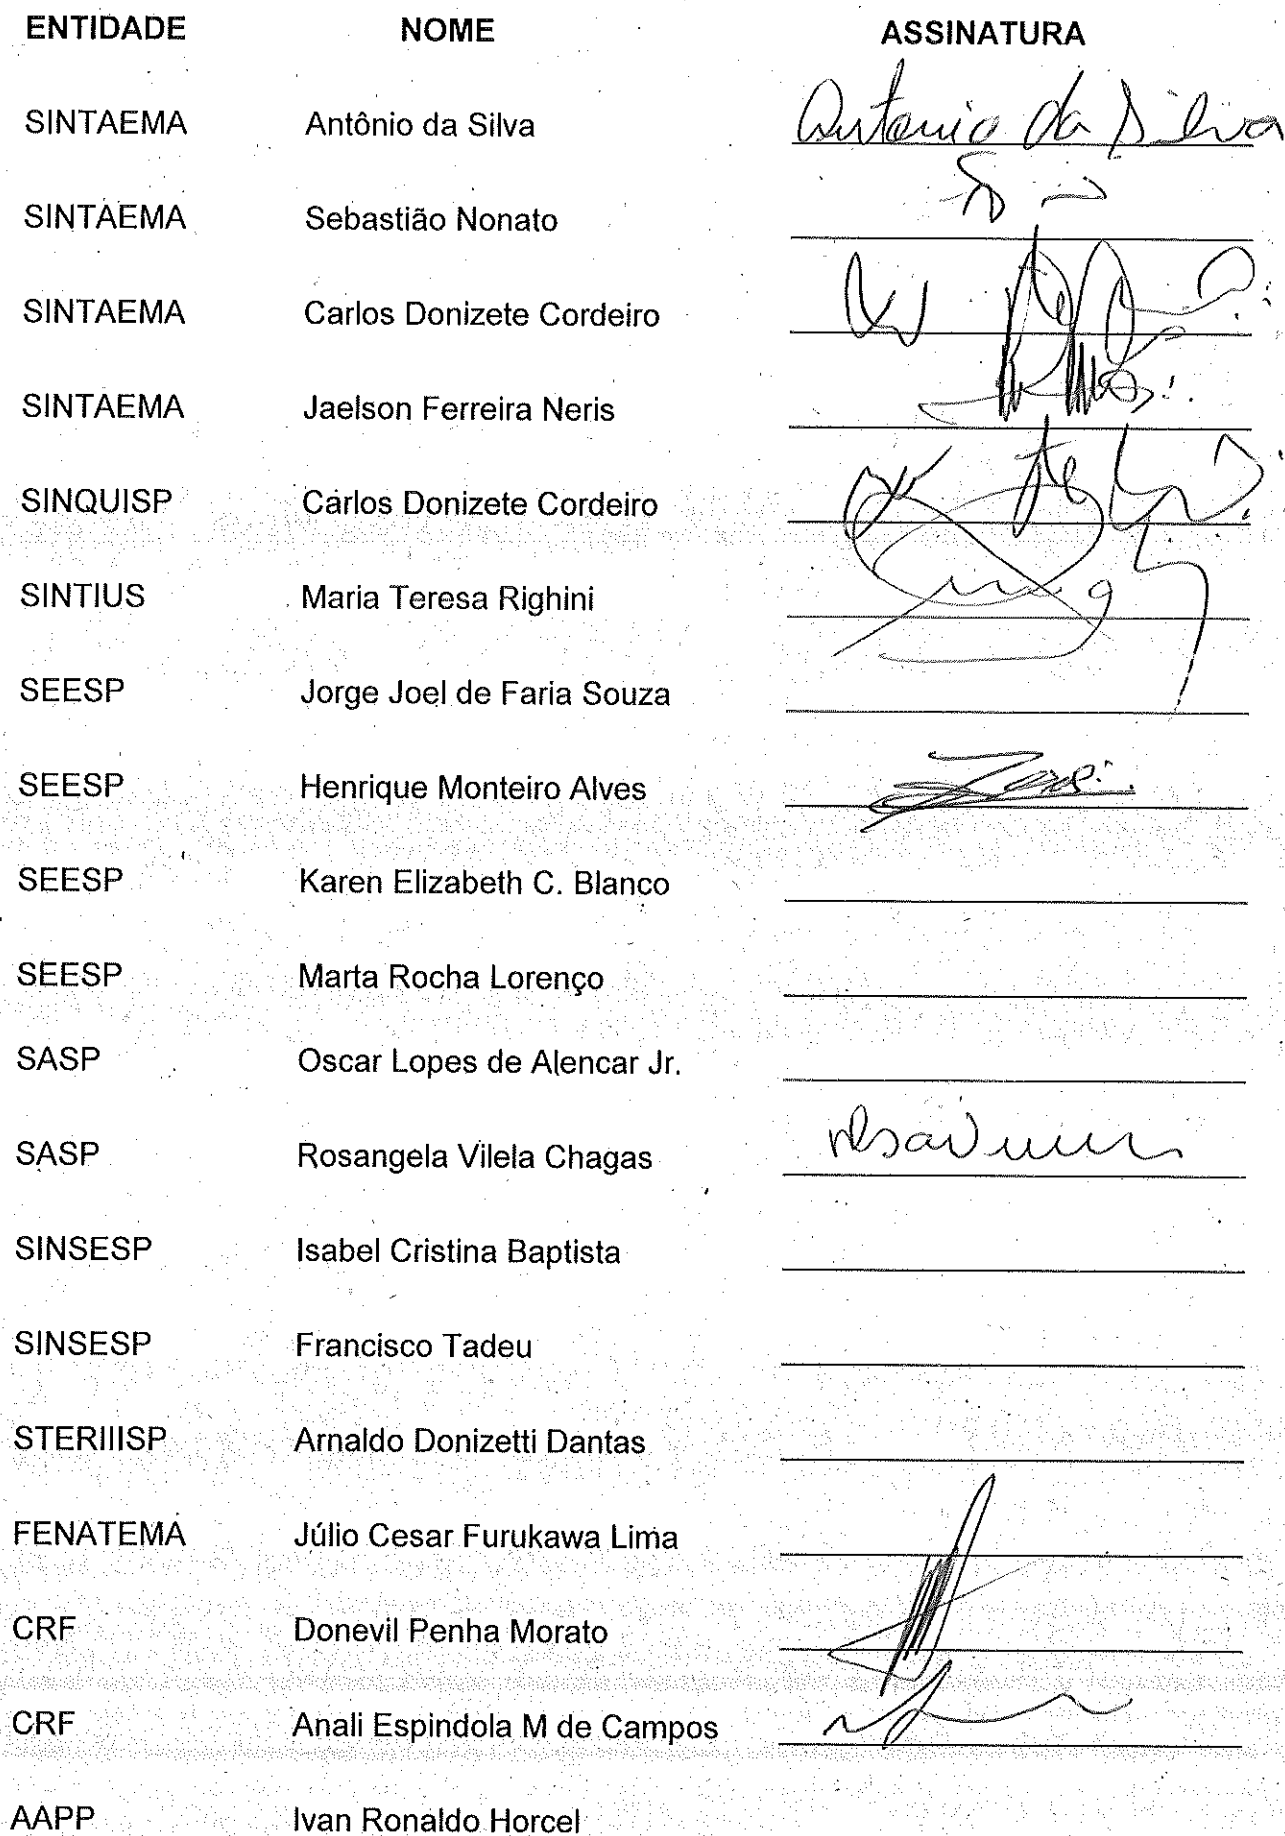 ENTIDADE NOME ASSINATURA
SINTAEMA Antônio da Silva Antonio da Silva
SINTAEMA Sebastião Nonato
SINTAEMA Carlos Donizete Cordeiro
SINTAEMA Jaelson Ferreira Neris
SINQUISP Carlos Donizete Cordeiro
SINTIUS Maria Teresa Righini
SEESP Jorge Joel de Faria Souza
SEESP Henrique Monteiro Alves
SEESP Karen Elizabeth C. Blanco
SEESP Marta Rocha Lorenço
SASP Oscar Lopes de Alencar Jr.
SASP Rosangela Vilela Chagas
SINSESP Isabel Cristina Baptista
SINSESP Francisco Tadeu
STERIIISP Arnaldo Donizetti Dantas
FENATEMA Júlio Cesar Furukawa Lima
CRF Donevil Penha Morato
CRF Anali Espindola M de Campos
AAPP Ivan Ronaldo Horcel